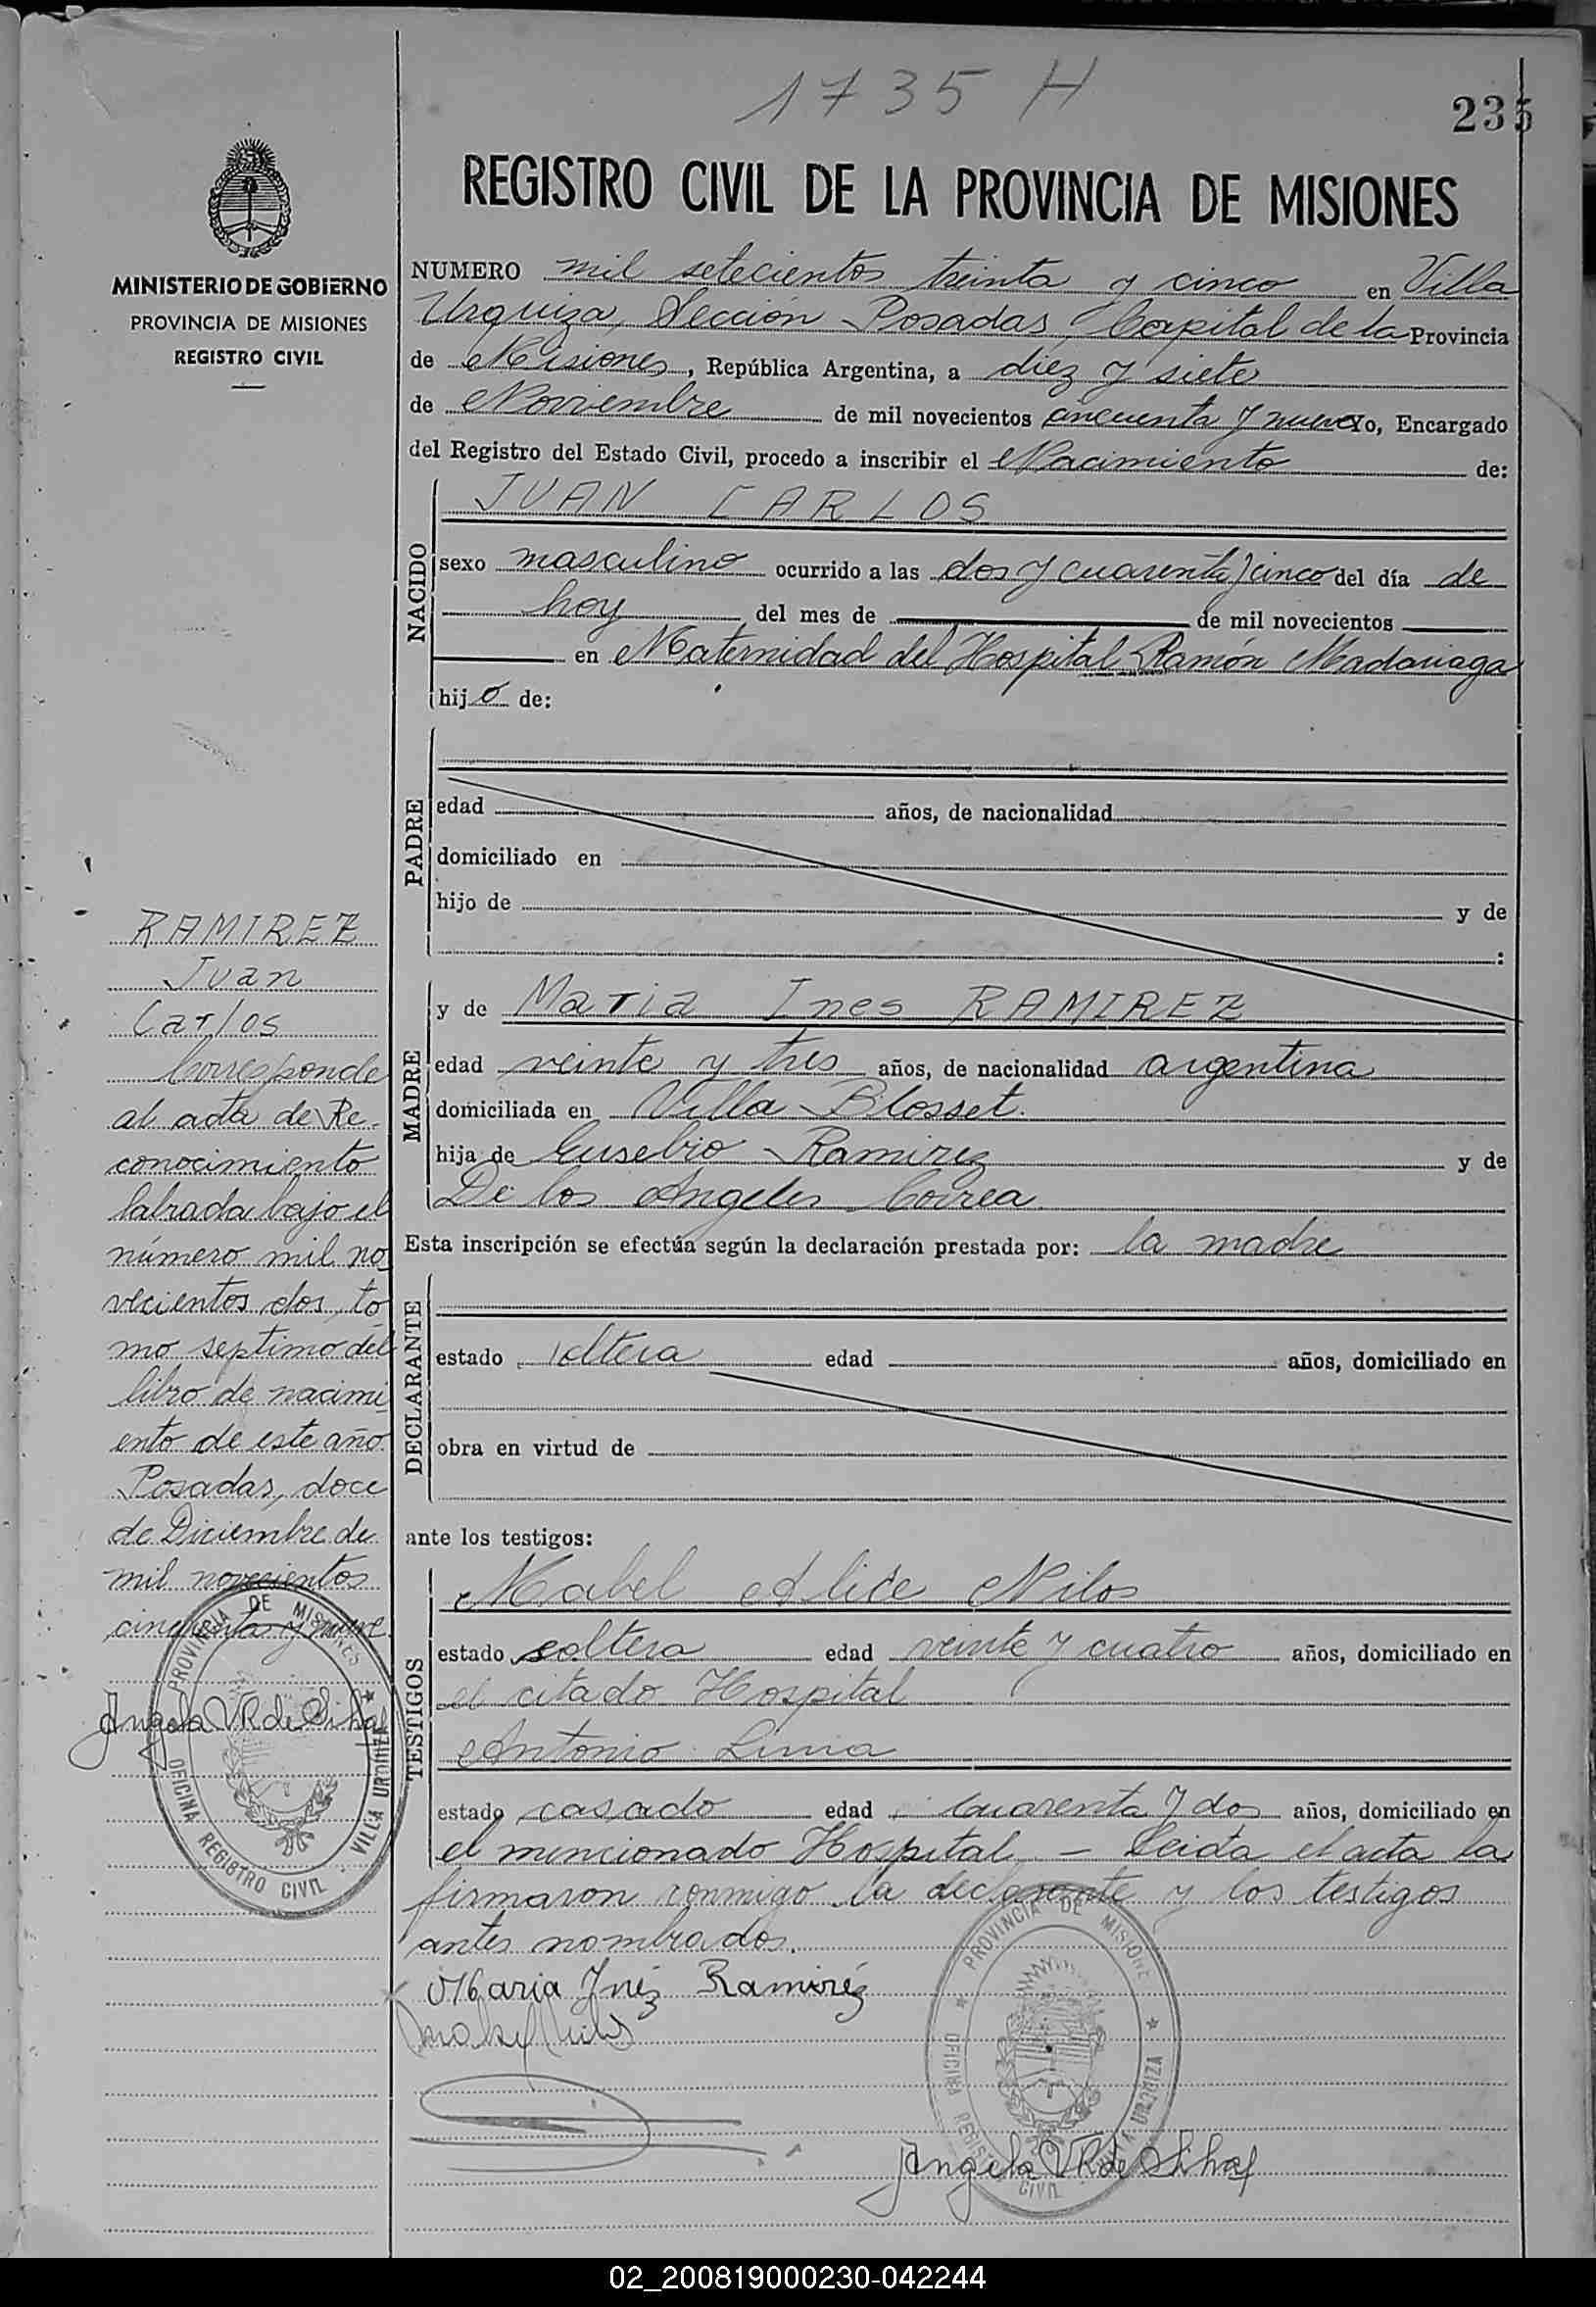 1735 H
235
REGISTRO CIVIL DE LA PROVINCIA DE MISIONES
MINISTERIO DE GOBIERNO
PROVINCIA DE MISIONES
REGISTRO CIVIL
NUMERO mil setecientos treinta y cinco en Villa
Urquiza, Sección Posadas, Capital de la Provincia
de Misiones, República Argentina, a diez y siete
de Noviembre de mil novecientos cincuenta y nueve yo, Encargado
del Registro del Estado Civil, procedo a inscribir el Nacimiento de:
NACIDO
JUAN CARLOS
sexo masculino ocurrido a las dos y cuarenta y cinco del día de
hoy del mes de de mil novecientos
en Maternidad del Hospital Ramón Madariaga
hijo de:
PADRE
edad años, de nacionalidad
domiciliado en
hijo de y de
:
MADRE
y de Maria Ines RAMIREZ
edad veinte y tres años, de nacionalidad argentina
domiciliada en Villa Blosset.
hija de Eusebio Ramirez y de
De los Angeles Correa
Esta inscripción se efectúa según la declaración prestada por: la madre
DECLARANTE
estado soltera edad años, domiciliado en
obra en virtud de
ante los testigos:
TESTIGOS
Mabel Alice Nilos
estado soltera edad veinte y cuatro años, domiciliado en
el citado Hospital
Antonio Lima
estado casado edad cuarenta y dos años, domiciliado en
el mencionado Hospital. - Leida el acta la
firmaron conmigo la declarante y los testigos
antes nombrados.
Maria Inéz Ramiréz
Angela VR de Silhaf
PROVINCIA DE MISIONES
OFICINA REGISTRO CIVIL
VILLA URQUIZA
RAMIREZ
Juan
Carlos
Corresponde
al acta de Re-
conocimiento
labrada bajo el
número mil no
vecientos dos, to
mo septimo del
libro de nacimi
ento de este año
Posadas, doce
de Diciembre de
mil novecientos
cincuenta y nueve
Angela VR de Silhaf
PROVINCIA DE MISIONES
OFICINA REGISTRO CIVIL
VILLA URQUIZA
02_200819000230-042244